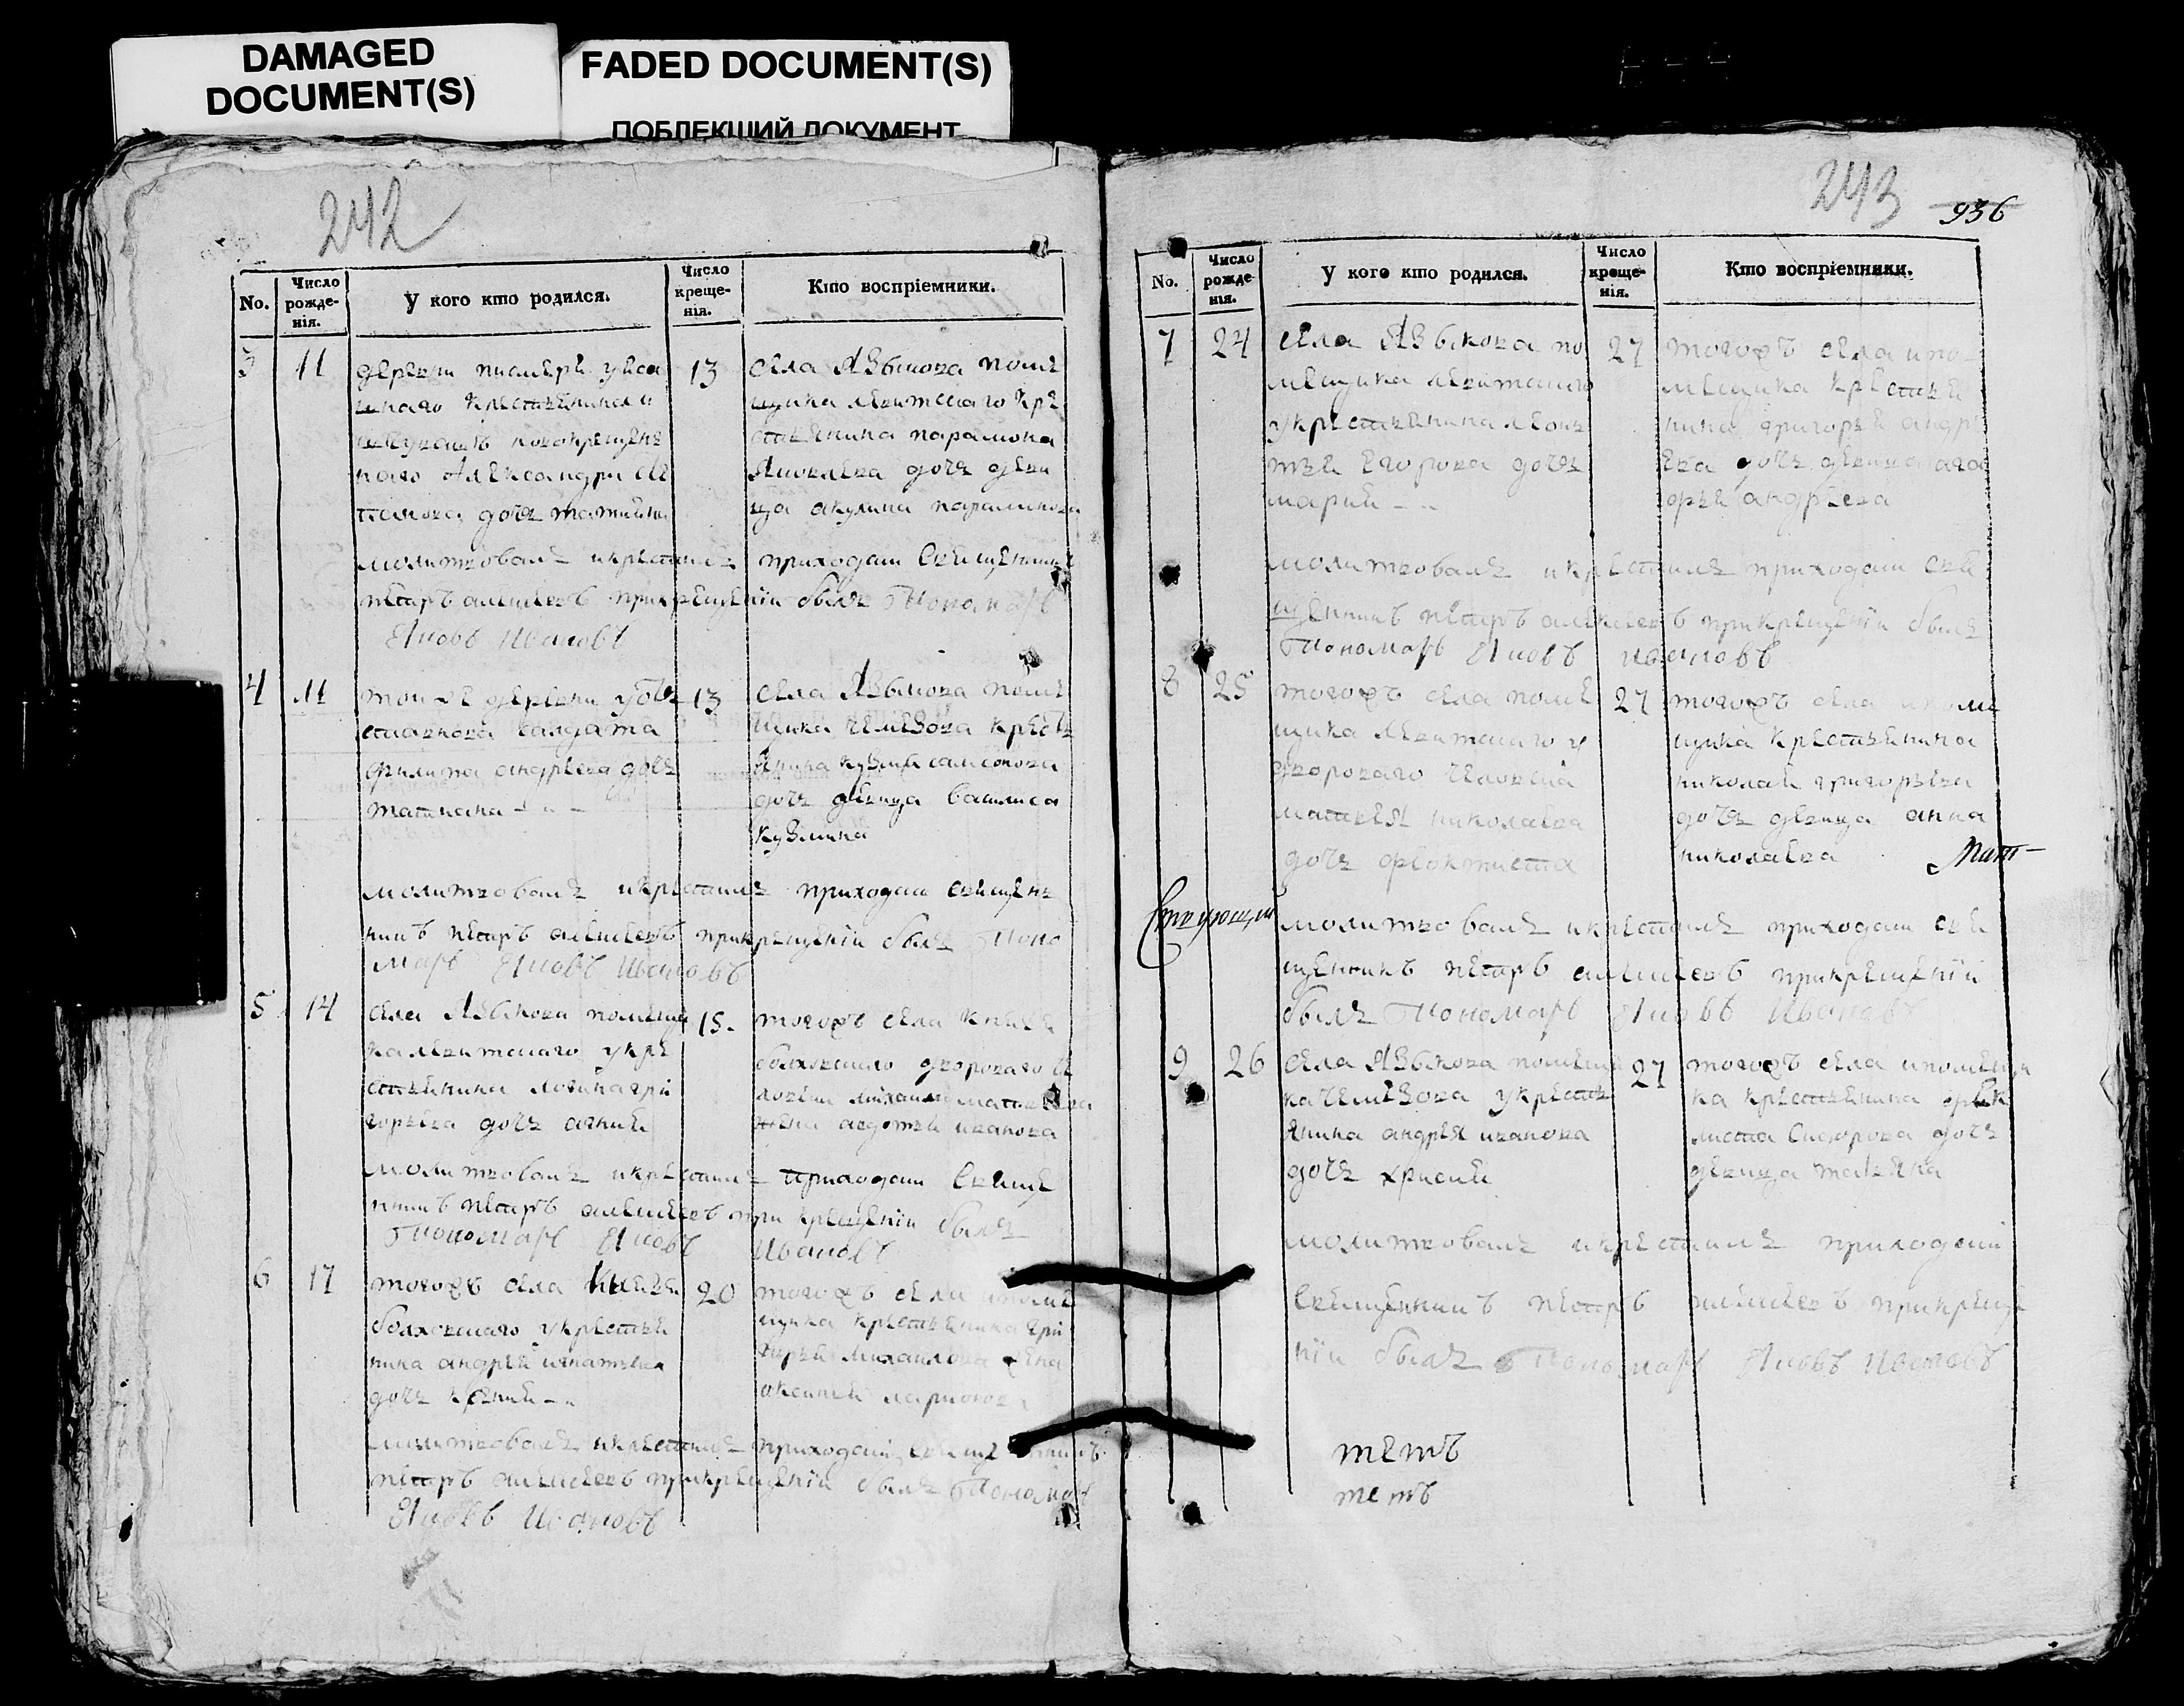 DAMAGED
DOCUMENT(S)
FADED DOCUMENT(S)
ПОБЛЕКШИЙ ДОКУМЕНТ
242
No.
Число рожде-нія.
У кого кто родился.
Число креще-нія.
Кто воспріемники.
3
11
деревни
крестьянина
новокрещенъ
наго Александра сте
панова дочь татиана
13
села Языкова поме
щика левитскаго кре
стьянина парамона
Яковлева дочь деви
ца акулина парамонова
молитвовалъ икрестилъ приходский свещенникъ
петръ алексеевъ прикрещении былъ Пономарь
Яковъ Ивановъ
4
11
тойже деревни
салдата
филипа андреева дочь
татиана
13
села Языкова поме
щика чемезова кресть
янина кузмы самсонова
дочь девица василиса
кузмина
молитвовалъ икрестилъ приходский свещен
никъ петръ алексеевъ прикрещении былъ Поно
марь Яковъ Ивановъ
5
14
села Языкова помещи
ка левитскаго укре
стьянина логина гри
горьева дочь агния
15.
тогожъ села князя
болховскаго двороваго че
ловека михаила матвеева
жена авдотья иванова
молитвовалъ икрестилъ приходский свеще
нникъ петръ алексеевъ при крещении былъ
Пономарь Яковъ Ивановъ
6
17
тогожъ села князя
болховскаго укрестья
нина андрея игнатьева
дочь
20
тогожъ села ипоме
щика крестьянина гри
горья михаилова жена
аксинья
молитвовалъ икрестилъ приходский свещенникъ
петръ алексеевъ прикрещении былъ Пономарь
Яковъ Ивановъ
243
936
No.
Число рожде-нія.
У кого кто родился.
Число креще-нія.
Кто воспріемники.
7
24
села Языкова по
мещика левитскаго
укрестьянина леон
тья егорова дочь
мария
27
тогожъ села ипо
мещика крестья
нина григорья андре
ева дочь девица
андреева
молитвовалъ икрестилъ приходский све
щенникъ петръ алексеевъ прикрещении былъ
Пономарь Яковъ Ивановъ
8
25
тогожъ села поме
щика левитскаго у
двороваго человека
матвея николаева
дочь феоктиста
27
тогожъ села ипоме
щика крестьянина
николая григорьева
дочь девица анна
николаева
молитвовалъ икрестилъ приходский све
щенникъ петръ алексеевъ прикрещении
былъ Пономарь Яковъ Ивановъ
9
26
села Языкова помещи
ка чемезова укресть
янина андрея иванова
дочь
27
тогожъ села ипомещи
ка крестьянина
сидорова дочь
девица
молитвовалъ икрестилъ приходский
свещенникъ петръ алексеевъ прикреще
нии былъ Пономарь Яковъ Ивановъ